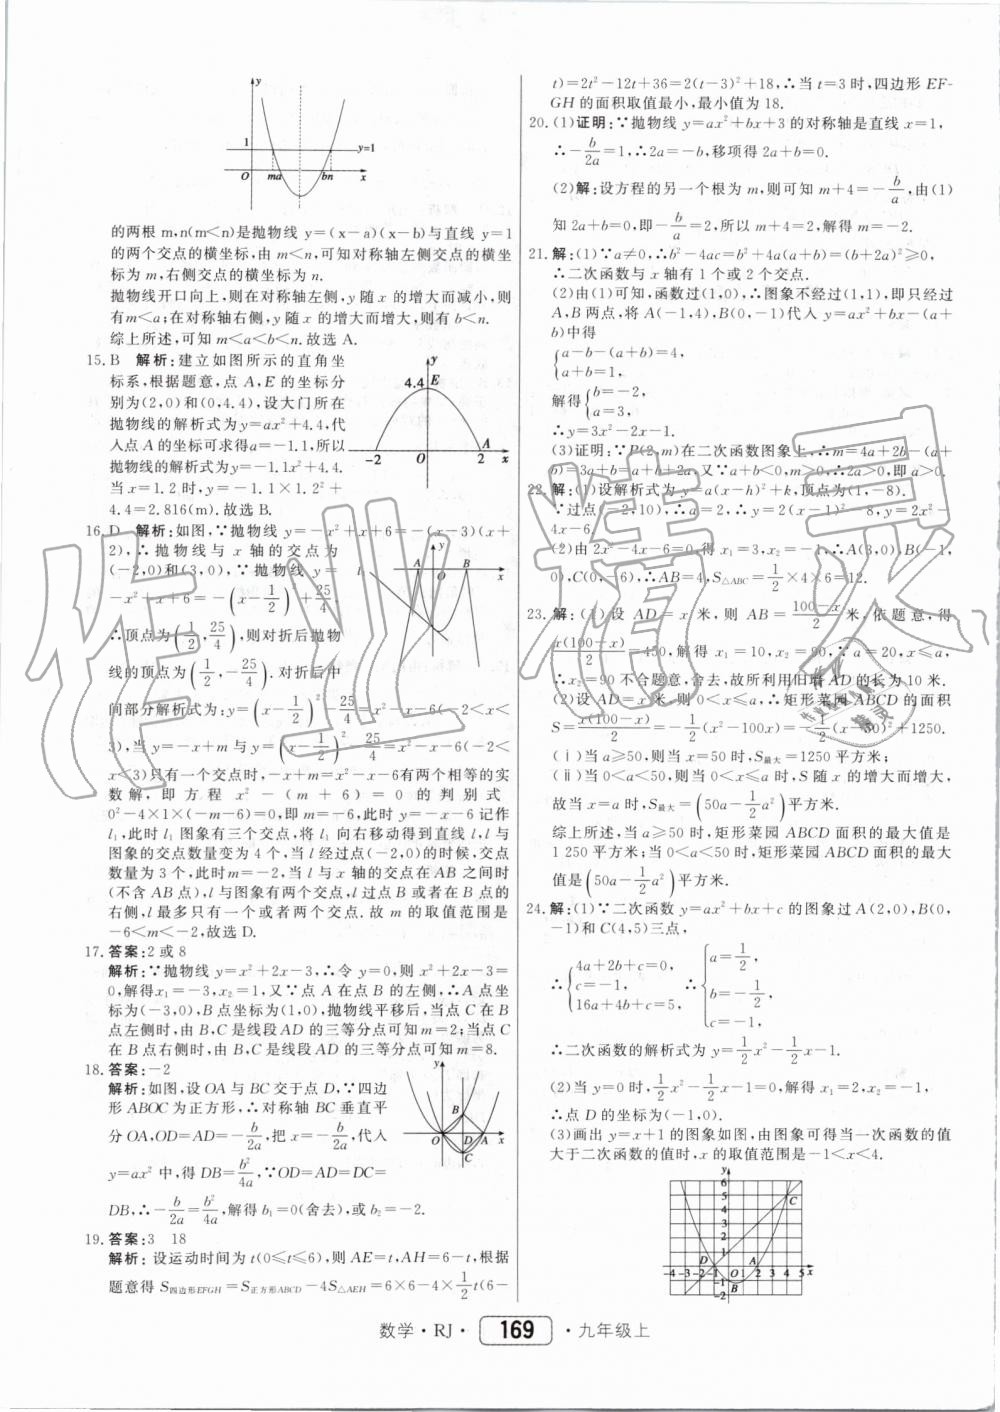 的两根 m,n(m<n)是抛物线 y=(x-a)(x-b)与直线 y=1
的两个交点的横坐标,由 m<n,可知对称轴左侧交点的横坐
标为 m,右侧交点的横坐标为 n.
抛物线开口向上,则在对称轴左侧,y 随 x 的增大而减小,则
有m<a;在对称轴右侧,y 随 x 的增大而增大,则有 b<n.
综上所述,可知 m<a<b<n.故选 A.
15.B 解析:建立如图所示的直角坐
标系,根据题意,点 A,E 的坐标分
别为(2,0)和(0,4.4),设大门所在
抛物线的解析式为y=ax²+4.4,代
入点 A 的坐标可求得a=-1.1,所以
抛物线的解析式为y=-1.1x²+4.4.
当 x=1.2 时,y=-1.1×1.2²+
4.4=2.816(m).故选 B.
16.D 解析:如图,∵抛物线 y=-x²+x+6=-(x-3)(x+
2),∴抛物线与 x 轴的交点为
(-2,0)和(3,0),∵抛物线 y=
-x²+x+6=-(x-1/2)²+25/4,
∴顶点为(1/2,25/4),则对折后抛物
线的顶点为(1/2,-25/4).对折后中
间部分解析式为:y=(x-1/2)²-25/4=x²-x-6(-2<x<
3),当 y=-x+m与 y=(x-1/2)²-25/4=x²-x-6(-2<
x<3)只有一个交点时,-x+m=x²-x-6有两个相等的实
数解,即方程 x²-(m+6)=0 的判别式
0²-4×1×(-m-6)=0,即 m=-6,此时 y=-x-6记作
l₁,此时 l₁ 图象有三个交点,将 l₁ 向右移动得到直线 l,l 与
图象的交点数量变为 4 个,当 l 经过点(-2,0)的时候,交点
数量为 3 个,此时m=-2,当 l 与 x 轴的交点在AB 之间时
(不含 AB 点),l 与图象有两个交点,l 过点 B 或者在 B 点的
右侧,l 最多只有一个或者两个交点.故 m 的取值范围是
-6<m<-2,故选 D.
17.答案:2 或 8
解析:∵抛物线 y=x²+2x-3,∴令 y=0,则 x²+2x-3=
0,解得x₁=-3,x₂=1,又∵点 A 在点 B 的左侧,∴A 点坐
标为(-3,0),B 点坐标为(1,0),抛物线平移后,当点 C 在B
点左侧时,由 B,C 是线段 AD 的三等分点可知 m=2;当点 C
在B 点右侧时,由 B,C 是线段AD 的三等分点可知m=8.
18.答案:-2
解析:如图,设 OA 与 BC 交于点 D,∵四边
形 ABOC 为正方形,∴对称轴 BC 垂直平
分 OA,OD=AD=-b/2a,把 x=-b/2a,代入
y=ax² 中,得 DB=b²/4a,∵OD=AD=DC=
DB,∴-b/2a=b²/4a,解得 b₁=0(舍去),或 b₂=-2.
19.答案:3 18
解析:设运动时间为 t(0≤t≤6),则 AE=t,AH=6-t,根据
题意得 S四边形EFGH=S正方形ABCD-4S△AEH=6×6-4×1/2t(6-
t)=2t²-12t+36=2(t-3)²+18,∴当 t=3 时,四边形 EF-
GH 的面积取值最小,最小值为 18.
20.(1)证明:∵抛物线 y=ax²+bx+3的对称轴是直线 x=1,
∴-b/2a=1,∴2a=-b,移项得 2a+b=0.
(2)解:设方程的另一个根为 m,则可知 m+4=-b/a,由(1)
知 2a+b=0,即-b/a=2,所以 m+4=2,解得 m=-2.
21.解:(1)∵a≠0,∴b²-4ac=b²+4a(a+b)=(b+2a)²≥0,
∴二次函数与 x 轴有 1 个或 2 个交点.
(2)由(1)可知,函数过(1,0),∴图象不经过(1,1),即只经过
A,B 两点,将 A(-1,4),B(0,-1)代入 y=ax²+bx-(a+
b)中得
{a-b-(a+b)=4,
a+b=1,
解得{b=-2,
a=3,
∴y=3x²-2x-1.
(3)证明:∵P(2,m)在二次函数图象上,∴m=4a+2b-(a+
b)=3a+b=a+b+2a,又∵a+b<0,m>0,∴2a>0,即 a>0.
22.解:(1)设解析式为 y=a(x-h)²+k,顶点为(1,-8).
∵过点(-2,10),∴a=2,∴y=2(x-1)²-8,y=2x²-
4x-6.
(2)由 2x²-4x-6=0,得 x₁=3,x₂=-1,∴A(3,0),B(-1,
0),C(0,-6),∴AB=4,S△ABC=1/2×4×6=12.
23.解:(1)设 AD=x 米,则 AB=(100-x)/2米,依题意,得
x(100-x)/2=450,解得 x₁=10,x₂=90,∵a=20,x≤a,
∴x₂=90 不合题意,舍去,故所利用旧墙 AD 的长为 10 米.
(2)设 AD=x 米,则 0<x≤a,∴矩形菜园 ABCD 的面积
S=x(100-x)/2=-1/2(x²-100x)=-1/2(x-50)²+1250.
(ⅰ)当 a≥50,则当 x=50 时,S最大=1250 平方米;
(ⅱ)当 0<a<50,则当 0<x≤a 时,S 随 x 的增大而增大,
故当 x=a 时,S最大=(50a-1/2a²)平方米.
综上所述,当 a≥50 时,矩形菜园 ABCD 面积的最大值是
1 250 平方米;当 0<a<50 时,矩形菜园 ABCD 面积的最大
值是(50a-1/2a²)平方米.
24.解:(1)∵二次函数 y=ax²+bx+c 的图象过 A(2,0),B(0,
-1)和 C(4,5)三点,
∴{4a+2b+c=0, c=-1, 16a+4b+c=5, ∴{a=1/2, b=-1/2, c=-1,
∴二次函数的解析式为 y=1/2x²-1/2x-1.
(2)当 y=0 时,1/2x²-1/2x-1=0,解得 x₁=2,x₂=-1,
∴点 D 的坐标为(-1,0).
(3)画出 y=x+1 的图象如图,由图象可得当一次函数的值
大于二次函数的值时,x 的取值范围是-1<x<4.
数学·RJ· 169 ·九年级上
作业精灵